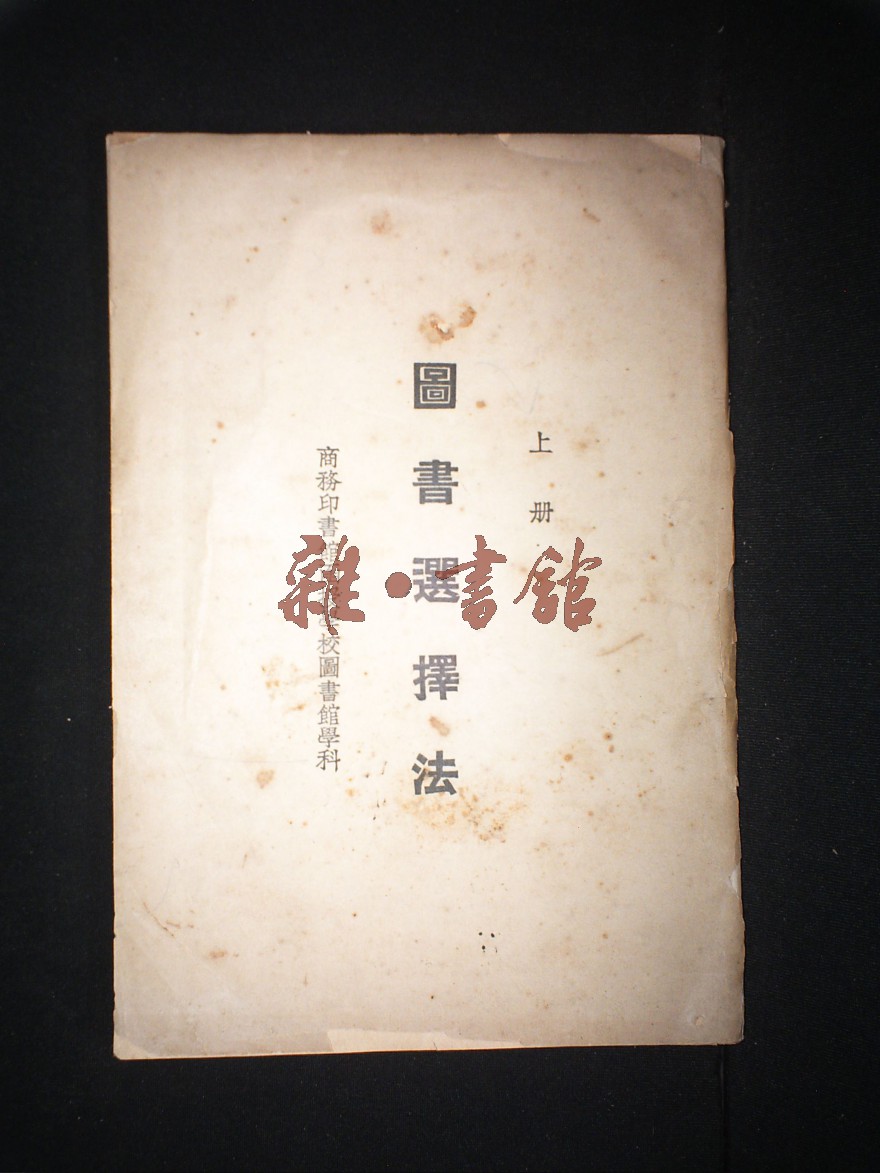 上册
圖書選擇法
商務印書館函授學校圖書館學科
雜·書館